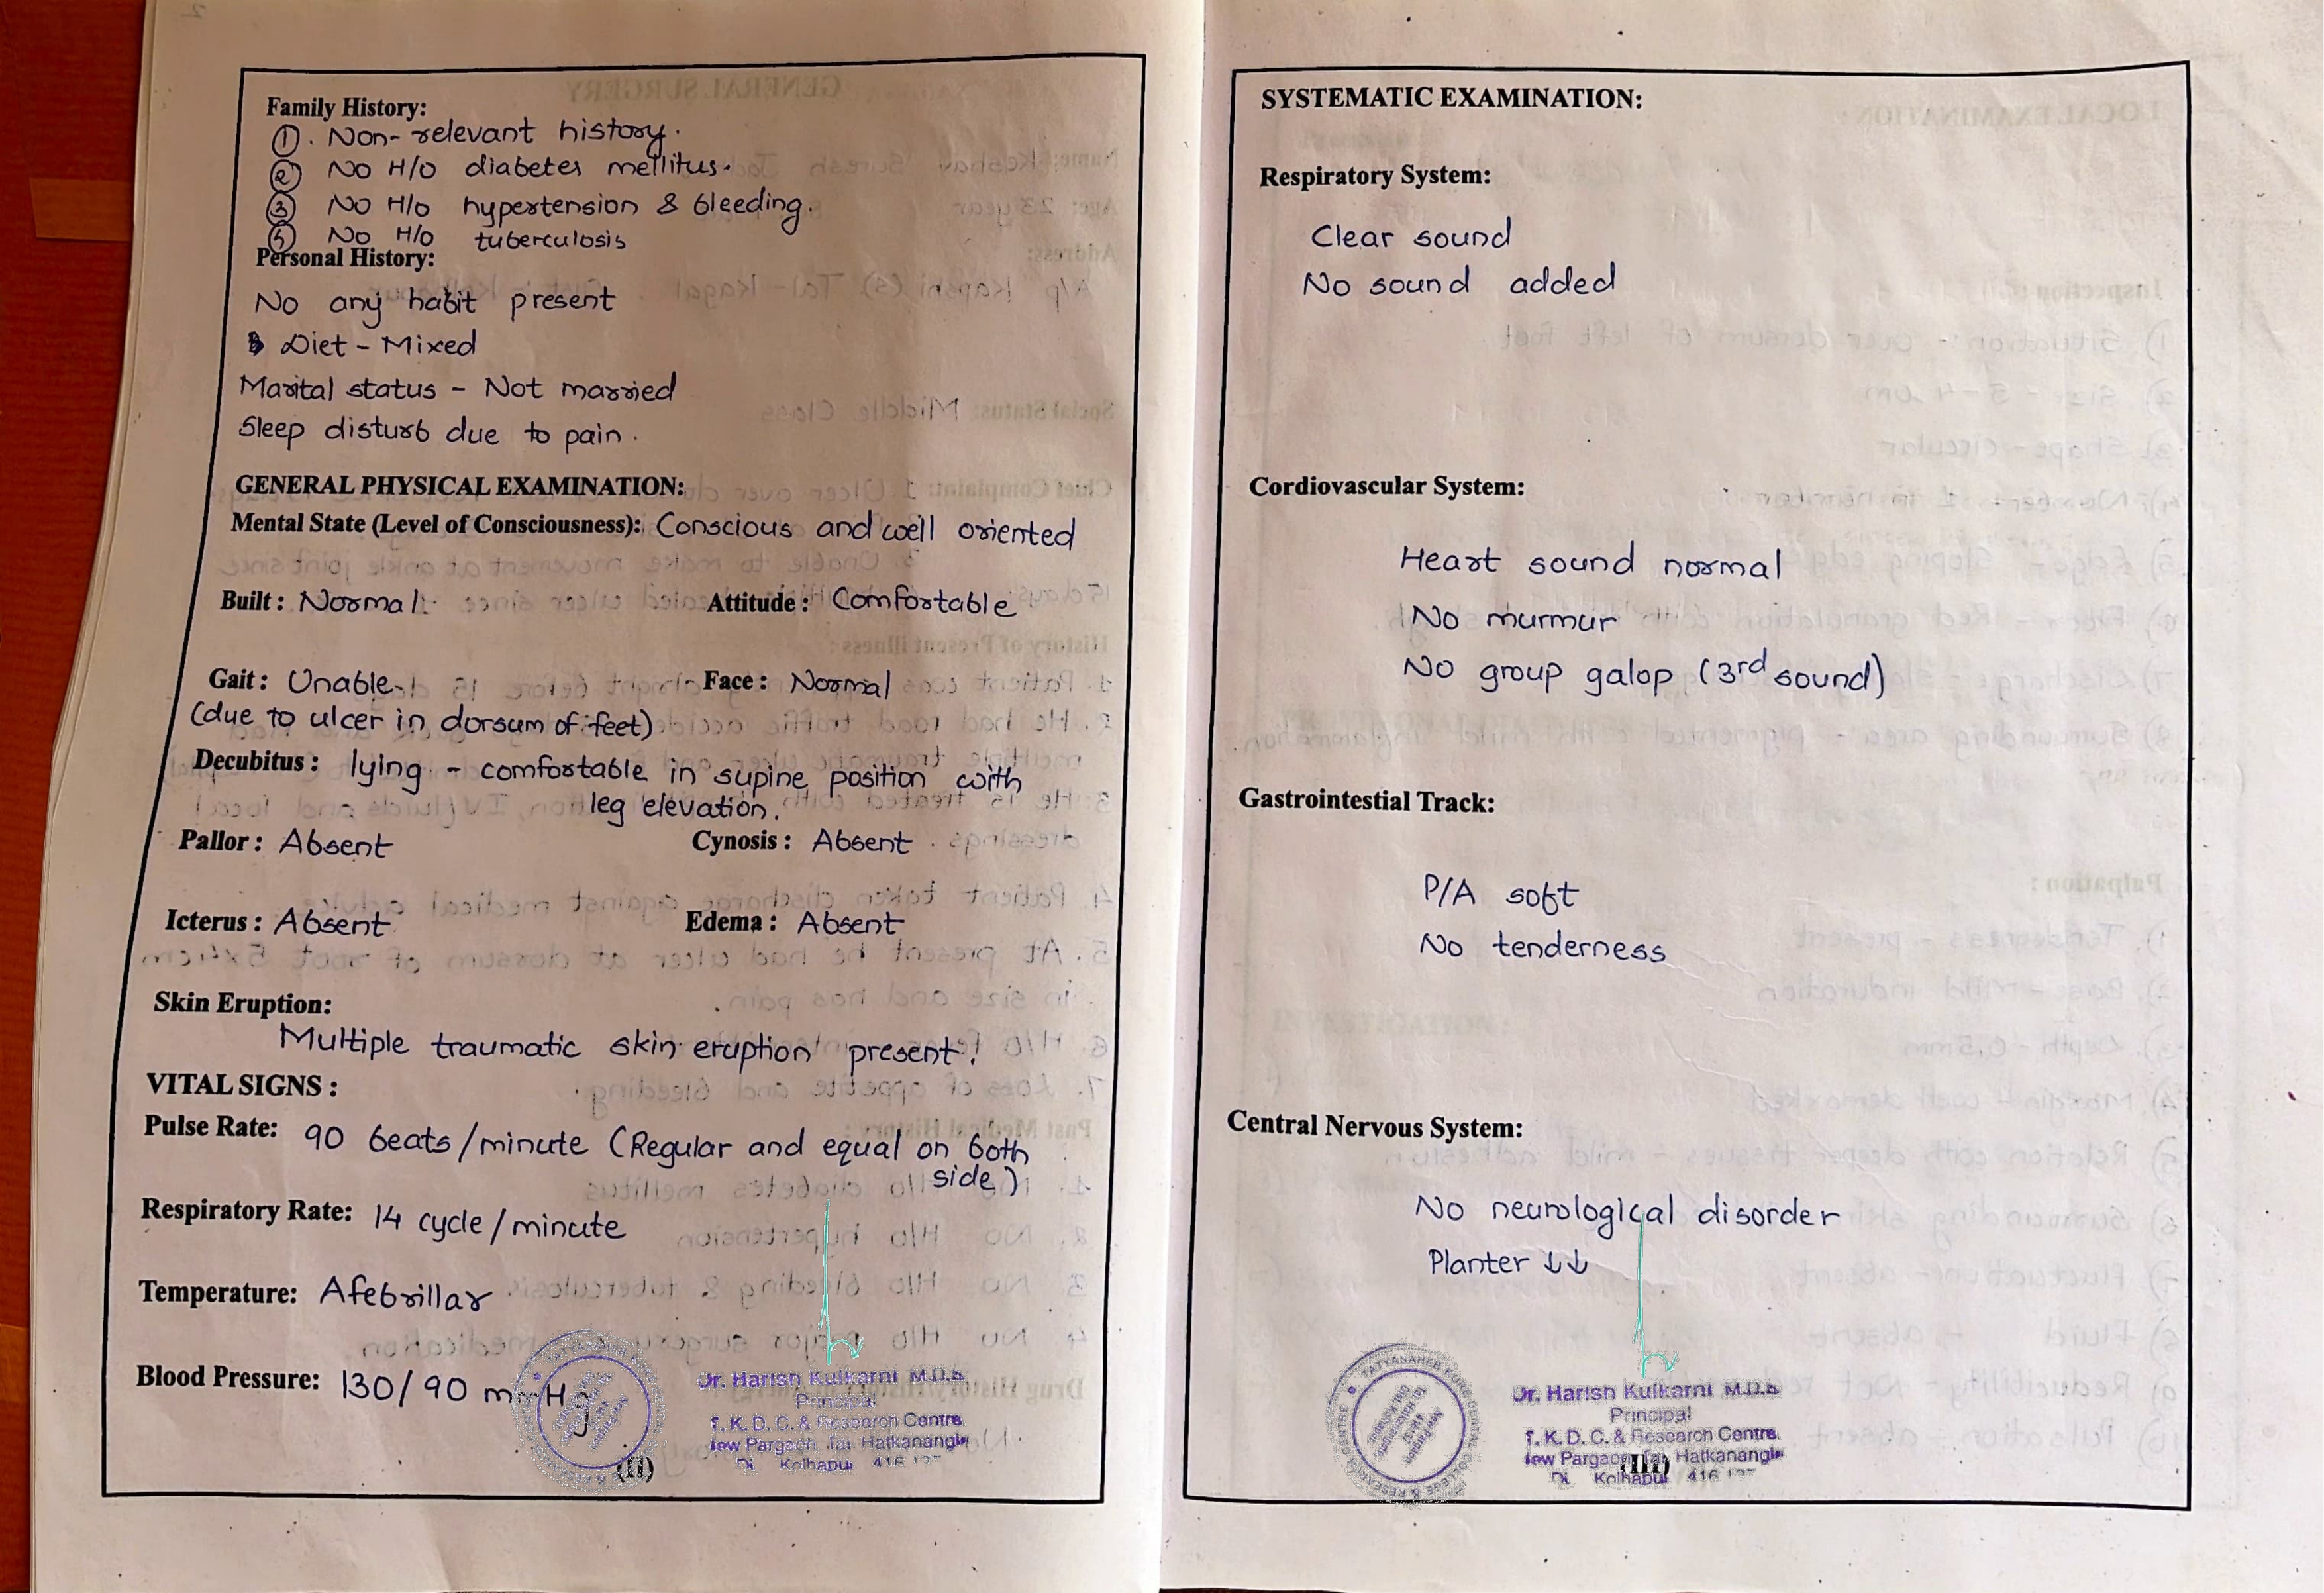 Family History:
①. Non-relevant history.
② No H/o diabetes mellitus.
③ No H/o hypertension & bleeding.
No H/o tuberculosis
Personal History:
No any habit present
Diet - Mixed
Marital status - Not married
Sleep disturb due to pain.
GENERAL PHYSICAL EXAMINATION:
Mental State (Level of Consciousness): Conscious and well oriented
Built : Normal Attitude : Comfortable
Gait : Unable Face : Normal
(due to ulcer in dorsum of feet)
Decubitus : lying - comfortable in supine position with
leg elevation.
Pallor : Absent Cynosis : Absent
Icterus : Absent Edema : Absent
Skin Eruption:
Multiple traumatic skin eruption present.
VITAL SIGNS :
Pulse Rate: 90 beats/minute (Regular and equal on both
side)
Respiratory Rate: 14 cycle/minute
Temperature: Afebrillar
Blood Pressure: 130/90 mmHg
Dr. Harish Kulkarni M.D.S
Principal
T. K. D. C. & Research Centre,
New Pargaon, Tal. Hatkanangle
Di. Kolhapur 416
(II)
SYSTEMATIC EXAMINATION:
Respiratory System:
Clear sound
No sound added
Cordiovascular System:
Heart sound normal
No murmur
No group galop (3rd sound)
Gastrointestial Track:
P/A soft
No tenderness
Central Nervous System:
No neurological disorder
Planter ↓↓
TATYASAHEB KORE DENTAL COLLEGE & RESEARCH CENTRE
Dr. Harish Kulkarni M.D.S
Principal
T. K. D. C. & Research Centre,
New Pargaon, Tal. Hatkanangle
Di. Kolhapur 416
(III)